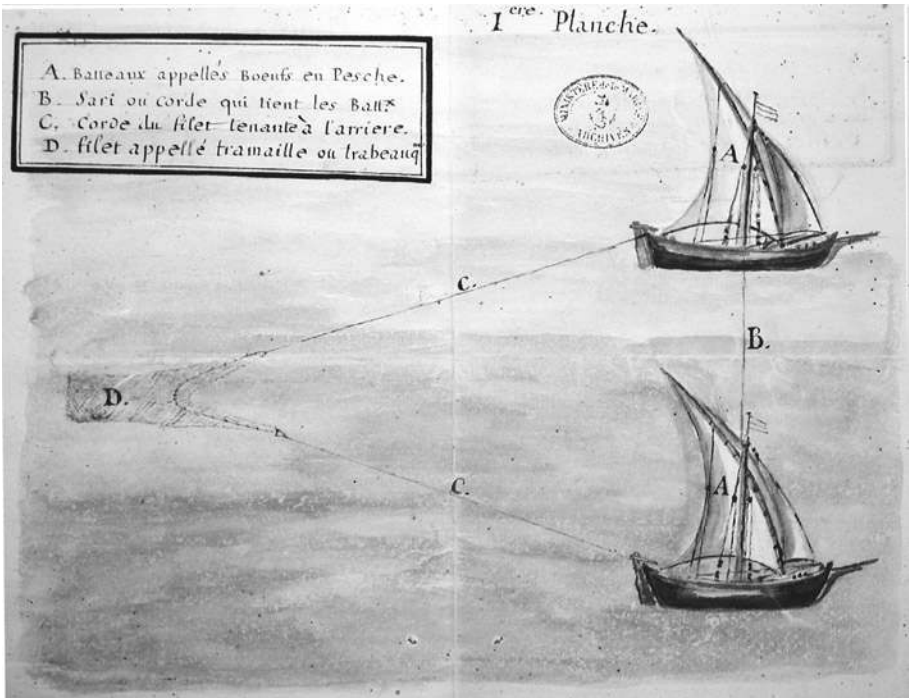 1ere. Planche.
A. Batteaux appellés Boeufs en Pesche.
B. Sari ou corde qui tient les Batt.x
C. Corde du filet tenante à l'arriere.
D. filet appellé tramaille ou trabeauq
MINISTERE de la MARINE
ARCHIVES
A.
C.
B.
D.
A.
C.